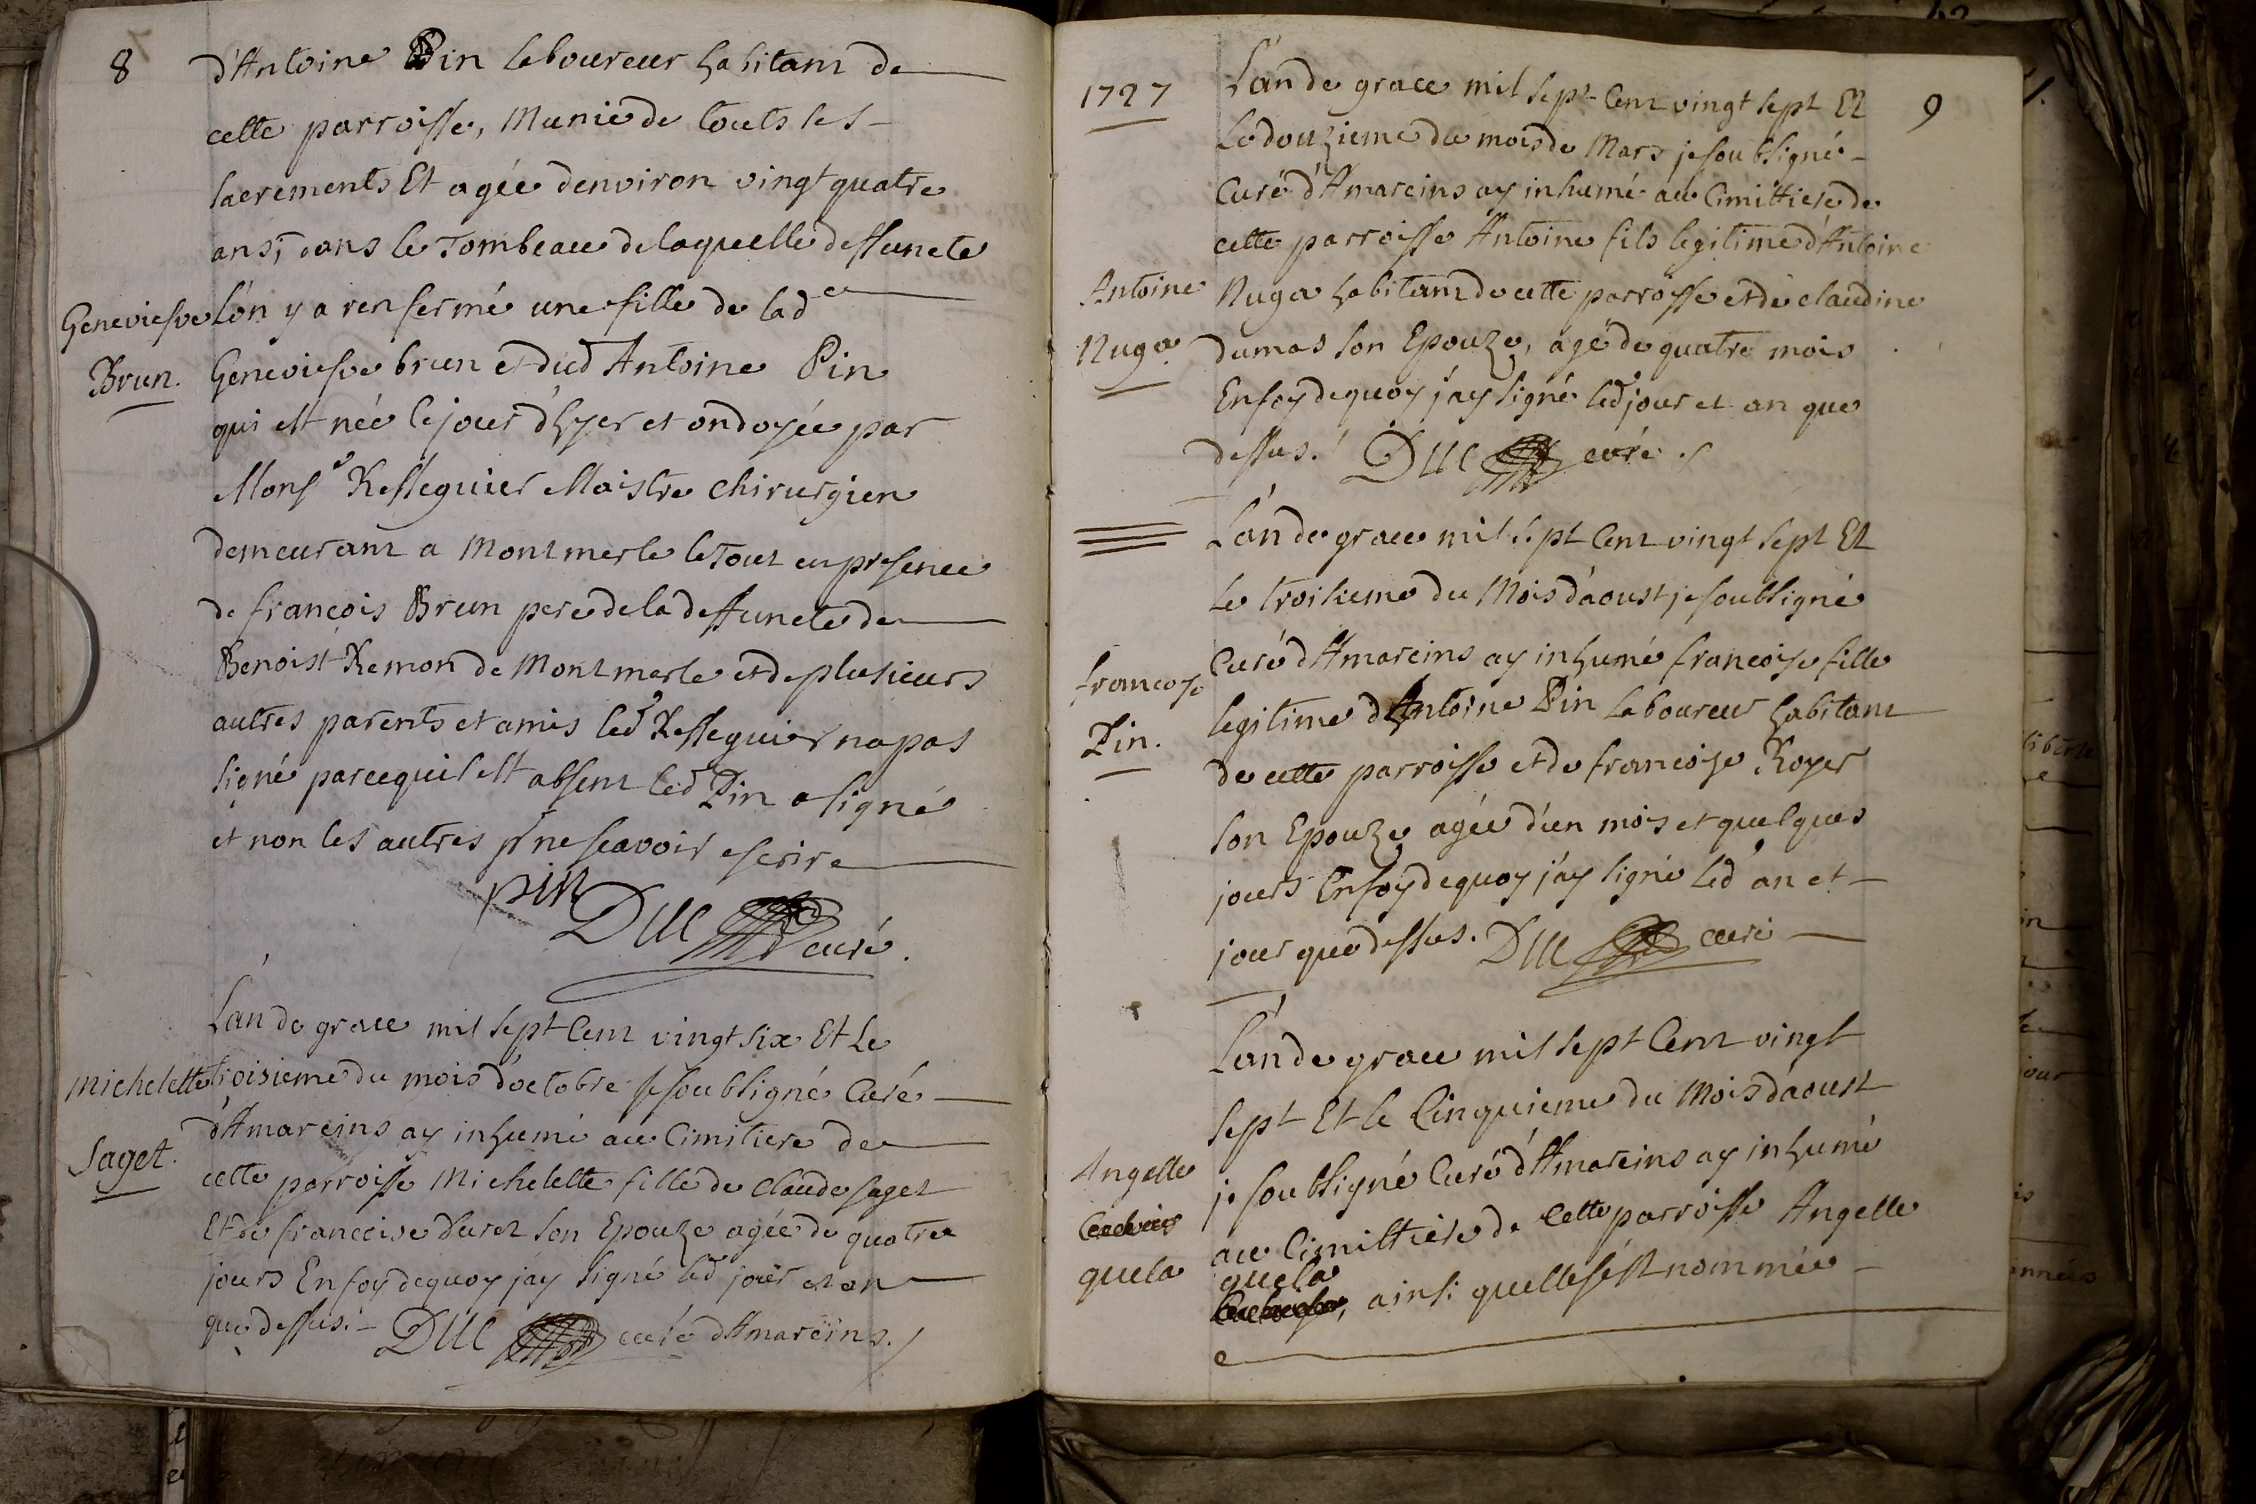 8
d'Antoine Pin laboureur habitant de
cette parroisse, Munie de touts les
sacrements Et agée denviron vingt quatre
ans, dans le Tombeau de laquelle deffuncte
Geneviefve
l'on y a renfermé une fille de lade
Brun.
Geneviefve brun et dud Antoine Pin
qui est née le jour d'hyer et ondoyée par
Monsr Resseguier Maistre chirurgien
demeurant a Montmerle le Tout en presence
de françois Brun pere de la deffuncte de
Benoist Remon de Montmerle et de plusieurs
autres parents et amis led Resseguier na pas
signé parcequil est absent led Pin a signé
et non les autres pr ne scavoir escrire
pin
Duc curé.
L'an de grace mil sept Cent vingt six Et Le
Michelette
troisieme du mois d'octobre je soubsigné Curé
d'Amareins ay inhumé au Cimitiere de
Saget.
cette parroisse Michelette fille de Claude Saget
Et de francoise Duret son Epouze agée de quatre
jours En foy dequoy j'ay signé led jour et an
que dessus. Duc curé d'Amareins.
9
1727
L'an de grace mil sept Cent vingt sept Et
Le douzieme du mois de Mars je soubsigné
Curé d'Amareins ay inhumé au Cimittiere de
cette parroisse Antoine fils legitime d'Antoine
Antoine
Nuga habitant de cette parroisse et de claudine
Nuga
dumas son Epouze, agé de quatre mois
En foy dequoy j'ay signé led jour et an que
dessus. Duc curé.
L'an de grace mil sept Cent vingt sept Et
Le troisieme du Mois d'aoust je soubsigné
Curé d'Amareins ay inhumé francoise fille
francoise
legitime d'Antoine Pin Laboureur habitant
Pin.
de cette parroisse et de francoize Royer
son Epouze agée d'un mois et quelques
jours En foy dequoy j'ay signé led an et
jour que dessus. Duc curé
L'an de grace mil sept Cent vingt
sept Et le Cinquieme du Mois d'aoust
je soubsigné Curé d'Amareins ay inhumé
Angelle
au Cimittiere de Cette parroisse Angelle
quela
quela
, ainsi quelle sest nommée